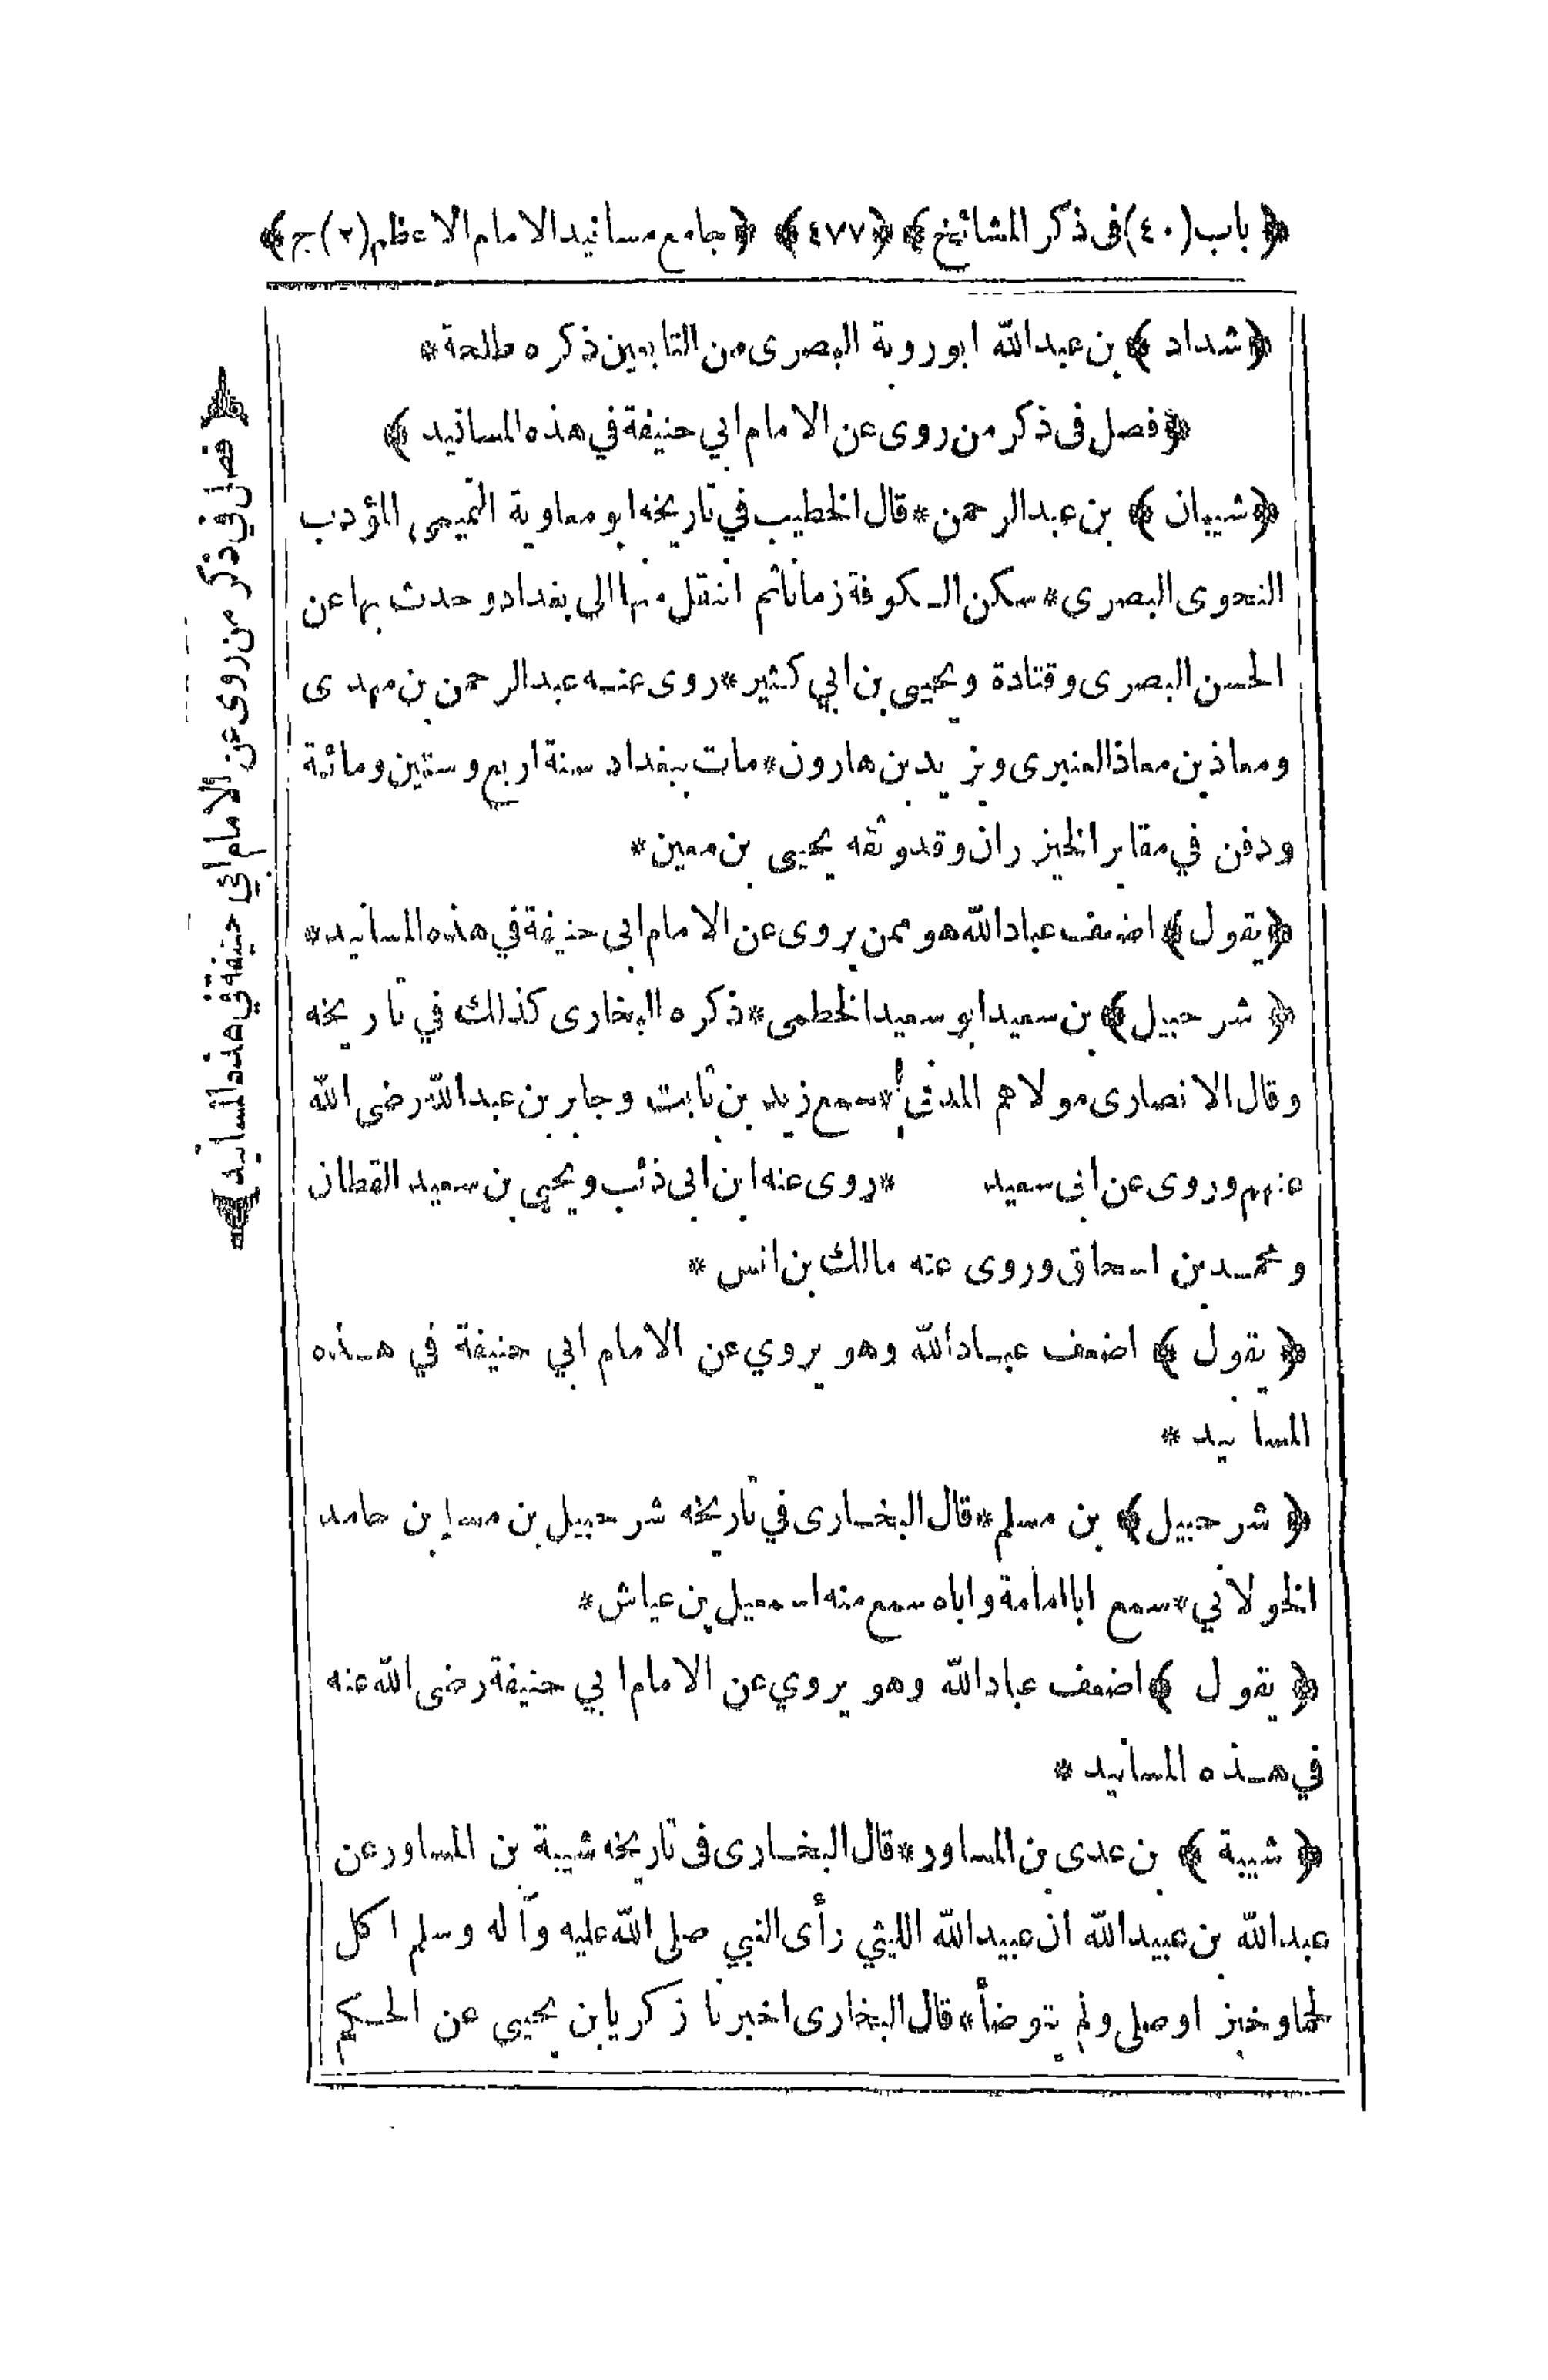 ﴿باب(٤٠)فى ذكر المشائخ﴾ ﴿٤٧٧﴾ ﴿جامع مسانيد الامام الاعظم(٢)ج﴾
﴿شداد﴾ بن عبدالله ابوروبة البصرى من التابعين ذكره طلحة*
﴿فصل فى ذكر من روى عن الامام ابي حنيفة في هذه المسانيد﴾
﴿شيبان﴾ بن عبدالرحمن*قال الخطيب في تاريخه ابو معاوية التميمى المؤدب
النحوى البصرى*سكن الكوفة زمانا ثم انتقل منها الي بغداد وحدث بها عن
الحسن البصرى وقتادة ويحيى بن ابي كثير*روى عنه عبدالرحمن بن مهدى
ومعاذ بن معاذ العنبرى ويزيد بن هارون*مات ببغداد سنة اربع وستين ومائة
ودفن في مقابر الخيزران وقد وثقه يحيى بن معين*
﴿يقول﴾ اضعف عباد الله هو ممن يروى عن الامام ابى حنيفة في هذه المسانيد*
﴿شرحبيل﴾ بن سعيد ابو سعيد الخطمى*ذكره البخارى كذلك في تاريخه
وقال الانصارى مولاهم المدني*سمع زيد بن ثابت وجابر بن عبدالله رضى الله
عنهم وروى عن ابى سعيد *روى عنه ابن ابى ذئب ويحيى بن سعيد القطان
ومحمد بن اسحاق وروى عنه مالك بن انس*
﴿يقول﴾ اضعف عباد الله وهو يروي عن الامام ابي حنيفة في هذه
المسانيد*
﴿شرحبيل﴾ بن مسلم*قال البخارى في تاريخه شرحبيل بن مسلم بن حامد
الخولاني*سمع ابا امامة واباه سمع منه اسمعيل بن عياش*
﴿يقول﴾ اضعف عباد الله وهو يروي عن الامام ابي حنيفة رضى الله عنه
في هذه المسانيد*
﴿شيبة﴾ بن عدى بن المساور*قال البخارى فى تاريخه شيبة بن المساور عن
عبدالله بن عبيدالله ان عبيدالله الليثي رأى النبي صلى الله عليه وآله وسلم اكل
لحما وخبز اوصلى ولم يتوضأ*قال البخارى اخبرنا زكريا بن يحيى عن الحكم
﴿فصل في ذكر من روى عن الامام ابي حنيفة في هذه المسانيد﴾